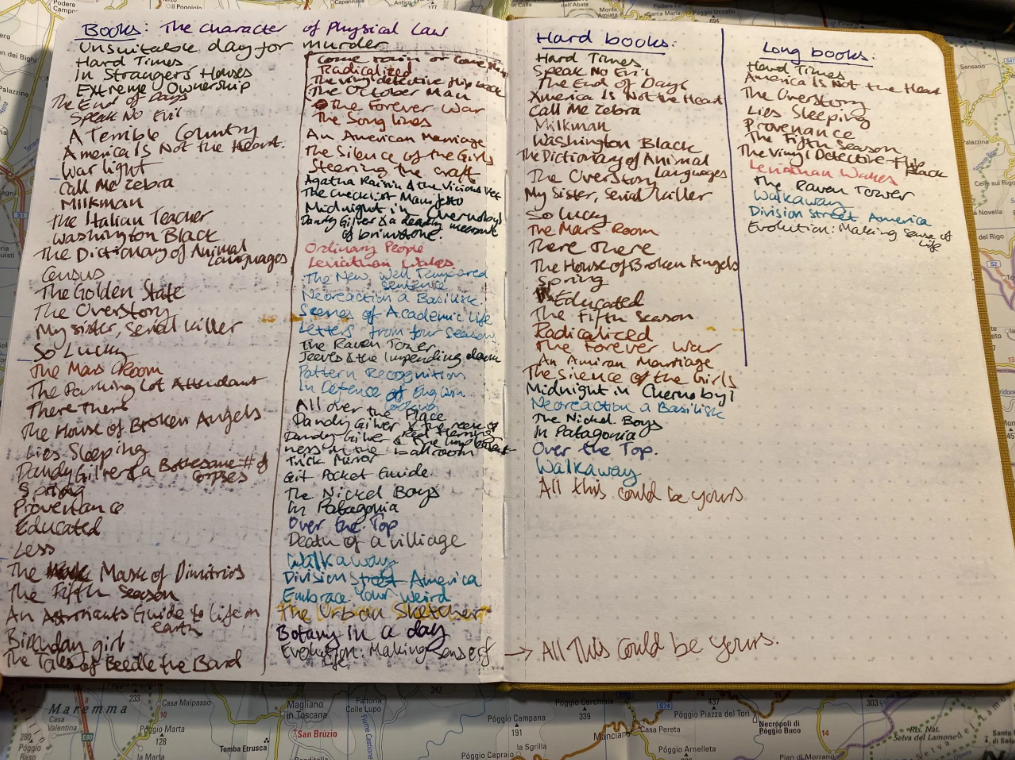 Books: The character of Physical Law
Unsuitable day for murder
Hard Times
In Strangers Houses
Extreme Ownership
The End of Days
Speak No Evil
A Terrible Country
America Is Not the Heart.
War light
Call Me Zebra
Milkman
The Italian Teacher
Washington Black
The Dictionary of Animal
Languages
Census
The Golden State
The Overstory
My sister, Serial Killer
So Lucky
The Mars Room
The Parking Lot Attendant
There There
The House of Broken Angels
Lies Sleeping
Dandy Gilver & a Bothersome # of
corpses
Spring
Provenance
Educated
Less
The Mask of Dimitrios
The Fifth Season
An Guide to Life on
Earth
Birthday girl
The Tales of Beedle the Bard
Come rain or come
Radicalized
The vinyl detective flip back
The October Man
The Forever War
The Song lines
An American Marriage
The Silence of the Girls
Steering the Craft
Agatha Raisin & the Vicious Vet
The Manifesto
Midnight in Chernobyl
Dandy Gilver & a deadly measure
of brimstone.
Ordinary People
Leviathan Wakes
The New, Well Tempered
Sentence
Neoreaction a Basilisk.
Scenes of Academic Life
Letters from four Seasons
The Raven Tower
Jeeves & the Impending doom
Pattern Recognition
In Defence of English
All over the Place
Dandy Gilver & the reek of
Red Herrings
Dandy Gilver & the
ness in the ballroom
Trick Mirror
Git Pocket Guide
The Nickel Boys
In Patagonia
Over the Top
Death of a villiage
Walkaway
Division street America
Embrace Your Weird
The Urban Sketcher
Botany in a day
Evolution: Making Sense of
Life
→ All This Could be yours.
Hard books:
Hard Times
Speak No Evil
The End of Days
America Is Not the Heart
Call Me Zebra
Milkman
Washington Black
The Dictionary of Animal
Languages
The Overstory
My Sister, Serial Killer
So Lucky
The Mars Room
There There
The House of Broken Angels
Spring
Educated
The Fifth Season
Radicalized
The Forever War
An Amiran Marriage
The Silence of the Girls
Midnight in Chernobyl
Neoreaction a Basilisk
The Nickel Boys
In Patagonia
Over the Top.
Walkaway
All this could be yours
Long books:
Hard Times
America Is Not the Heart
The Overstory
Lies Sleeping
Provenance
The Fifth Season
The Vinyl Detective - Flip
Back
Leviathan Wakes
The Raven Tower
Walkaway
Division Street America
Evolution: Making Sense of
Life
Maremma
Magliano
in Toscana
San Brùzio
Tomba Etrusca
Casa Malpasso
Casa Valentina
Póggio Morta
128
233
Fattoria
Colle Lupo
Póggio Campana
191
la Sgrilla
Póggio Capraio
Póggio Cerchiaia
339
Manciano
Casa Pereta
Póggio Arnelletta
Póggio Piazza del Tori
Necròpoli di
Póggio Buco
14
Selva del Lamone